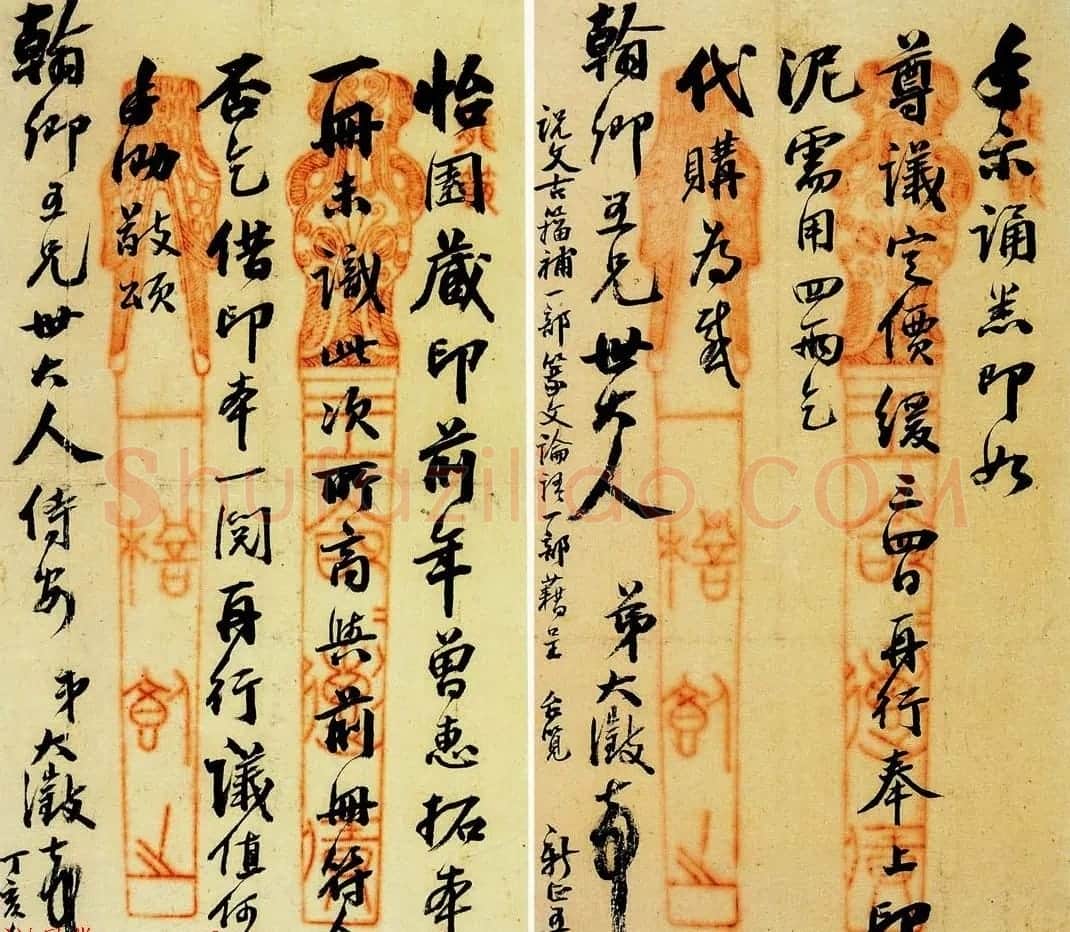 手示誦悉即如
尊議定價緩三四日再行奉上印
泥需用四兩乞
代購為感
翰卿五兄世大人 弟大澂
説文古籀補一部篆文論語一部藉呈 台覽 新正五
怡園藏印前年曾惠拓本
一冊未識此次所商與前冊符
否乞借印本一閱再行議值何
手泐敬頌
翰卿五兄世大人侍安 弟大澂
丁亥
Shufaziliao.COM